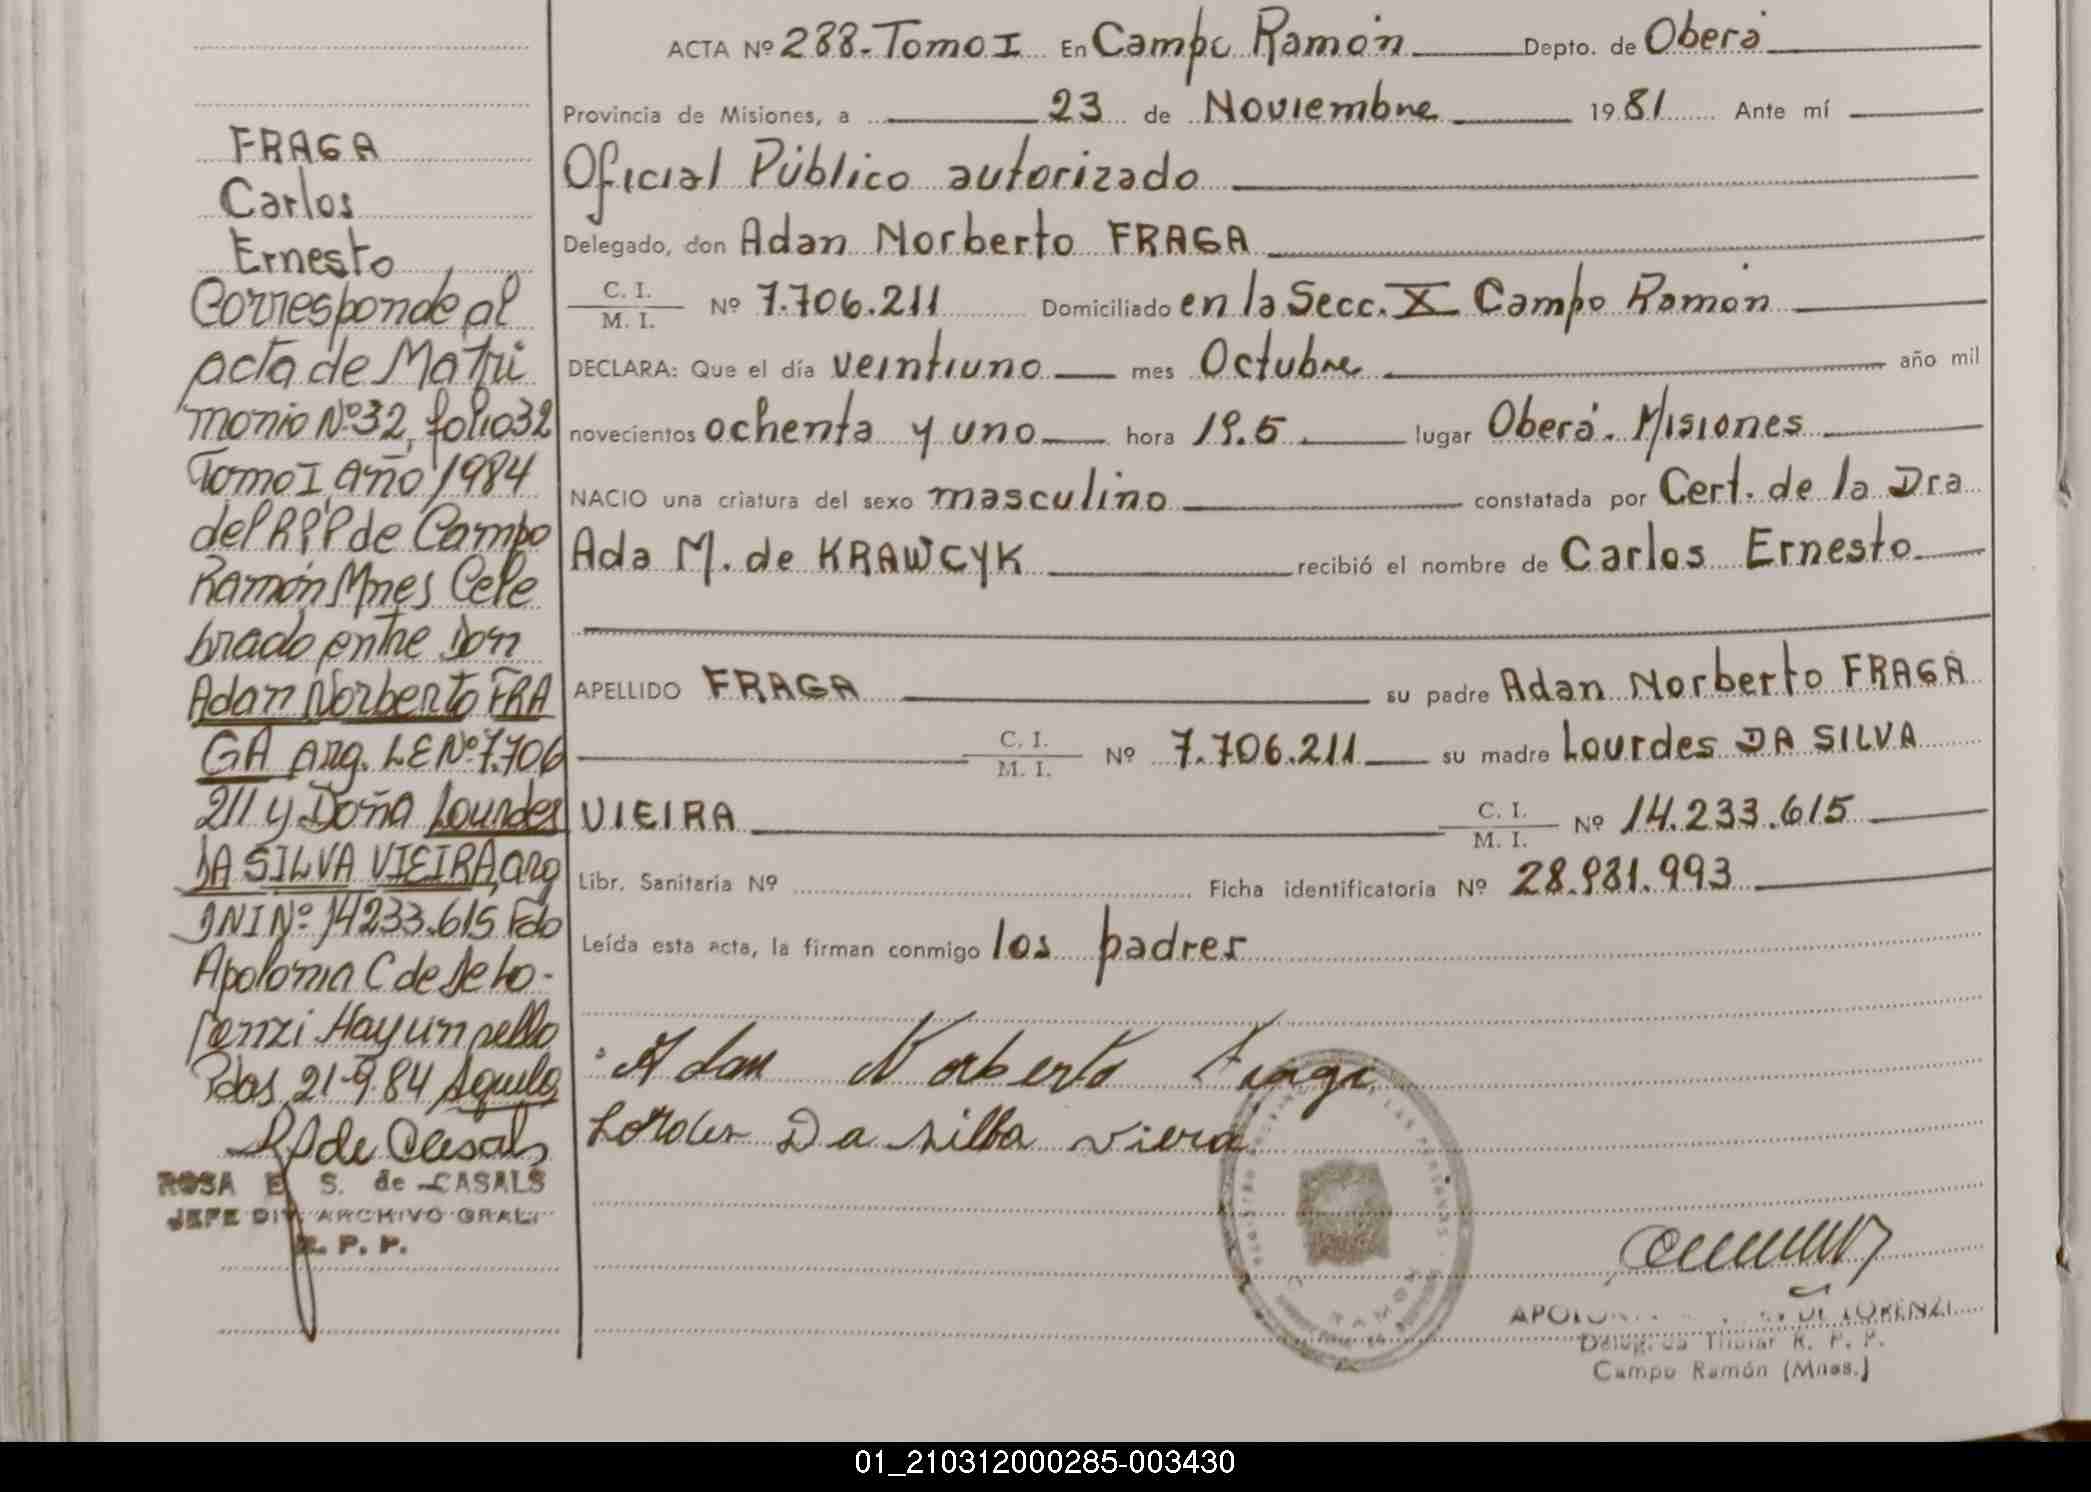 ACTA Nº 288-Tomo I En Campo Ramón Depto. de Oberá
Provincia de Misiones, a 23 de Noviembre 1981 Ante mí
Oficial Público autorizado
Delegado, don Adan Norberto FRAGA
C. I.
M. I. Nº 7.706.211 Domiciliado en la Secc. X Campo Ramón
DECLARA: Que el día veintiuno mes Octubre año mil
novecientos ochenta y uno hora 19.5 lugar Oberá. Misiones
NACIO una criatura del sexo masculino constatada por Cert. de la Dra
Ada M. de KRAWCYK recibió el nombre de Carlos Ernesto
APELLIDO FRAGA su padre Adan Norberto FRAGA
C. I.
M. I. Nº 7.706.211 su madre Lourdes DA SILVA
VIEIRA C. I.
M. I. Nº 14.233.615
Libr. Sanitaria Nº Ficha identificatoria Nº 28.981.993
Leída esta acta, la firman conmigo los padres
Adan Norberto Fraga
Da silba viera
DE LORENZI
Titular R. P. P.
Campo Ramón (Mnes.)
FRAGA
Carlos
Ernesto
Corresponde al
acta de Matri
monio Nº 32, folio 32
Tomo I, año 1984
del R.P.P de Campo
Ramón Mnes Cele
brado entre Don
Adan Norberto FRA
GA arg. LE Nº 7.706
211 y Doña Lourdes
DA SILVA VIEIRA, arg
DNI Nº 14233.615 Fdo
Apolonia C de de Lo-
renzi Hay un sello
Pdas, 21-9 84
de Casals
ROSA E. S. de CASALS
JEFE DIV. ARCHIVO GRAL.
R. P. P.
01_210312000285-003430